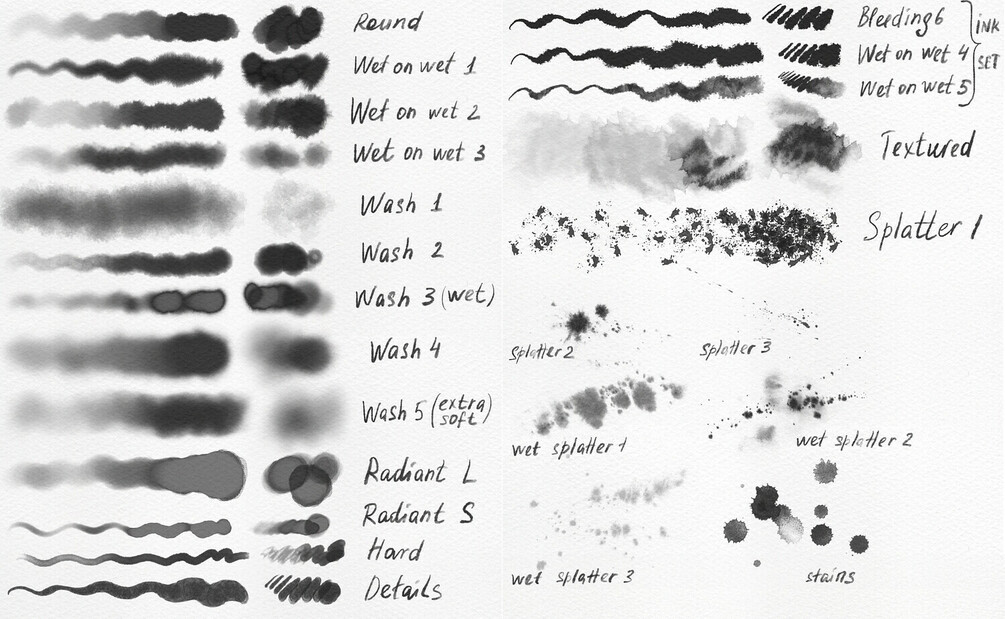 Round
Wet on wet 1
Wet on wet 2
Wet on wet 3
Wash 1
Wash 2
Wash 3 (wet)
Wash 4
Wash 5 (extra soft)
Radiant L
Radiant S
Hard
Details
Bleeding 6
Wet on wet 4
Wet on wet 5
INK SET
Textured
Splatter 1
Splatter 2
Splatter 3
wet splatter 1
wet splatter 2
wet splatter 3
stains